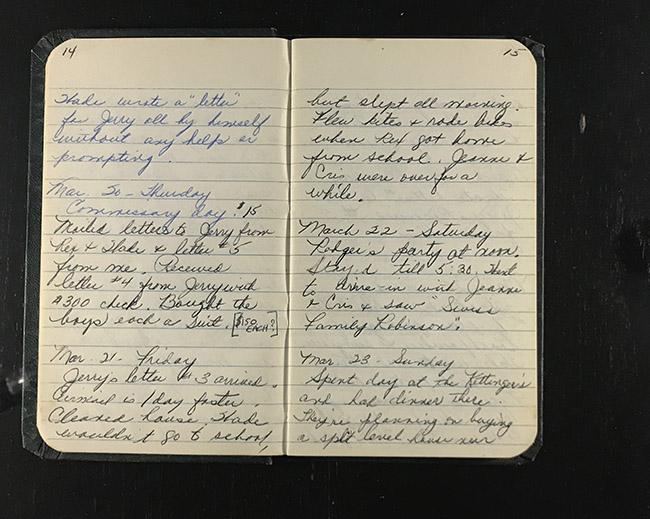 14
Wade wrote a "letter"
for Jerry all by himself
without any help or
prompting.
Mar. 20 - Thursday
Commissary day! $15
Mailed letters to Jerry from
Rex & Wade & letter #5
from me. Received
letter #4 from Jerry with
$300 check. Bought the
boys each a suit. [$150 EACH?]
Mar. 21 - Friday
Jerry's letter #3 arrived.
Airmail is 1 day faster.
Cleaned house. Wade
wouldn't go to school,
15
but slept all morning.
Flew kites & rode bikes
when Rex got home
from school. Jeanne &
Cris were over for a
while.
March 22 - Saturday
Rodger's party at noon.
Stay'd till 5:30. Went
to drive-in with Jeanne
& Cris & saw "Swiss
Family Robinson".
Mar. 23 - Sunday
Spent day at the
and had dinner there.
They're planning on buying
a split level house near